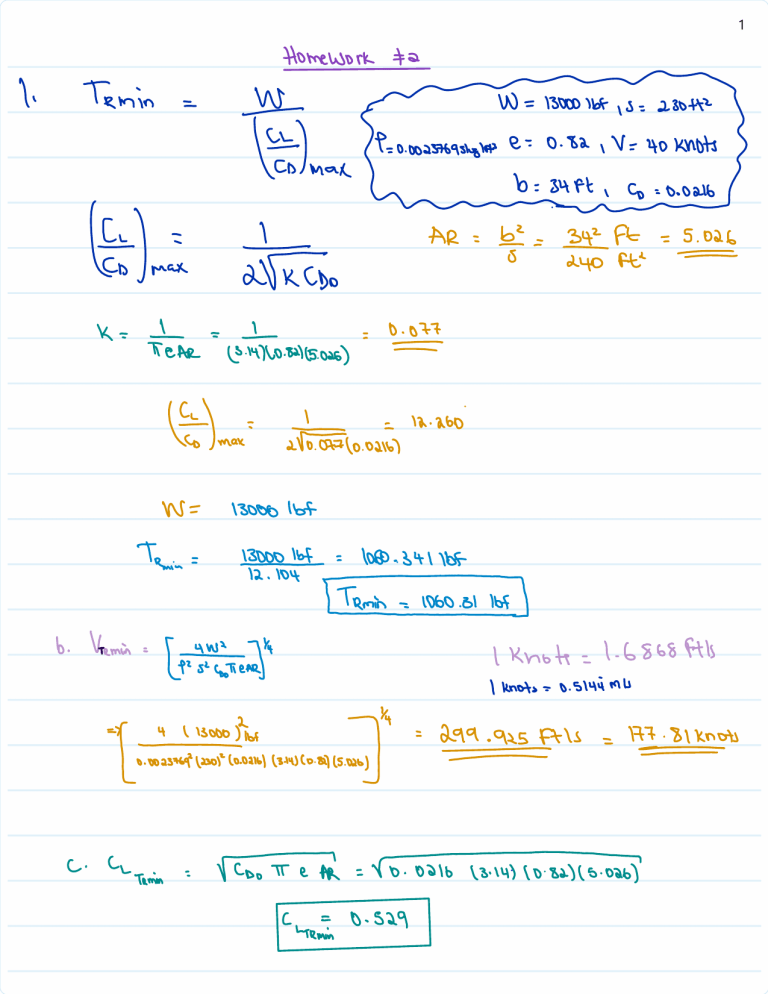 1
Homework #2
1. T_Rmin = W / (C_L/C_D)_max
W = 13000 lbf, S = 230 ft²
ρ = 0.0023769 slug/ft³ e = 0.82, V = 40 knots
b = 34 ft, C_D = 0.0216
(C_L/C_D)_max = 1 / 2√K C_D0
AR = b²/S = 34² ft / 240 ft² = 5.026
K = 1/πeAR = 1/(3.14)(0.82)(5.026) = 0.077
(C_L/C_D)_max = 1 / 2√0.077(0.0216) = 12.260
W = 13000 lbf
T_Rmin = 13000 lbf / 12.104 = 1060.341 lbf
T_Rmin = 1060.31 lbf
b. V_TRmin = [4W² / ρ² S² C_D0 π e AR]^1/4
1 Knots = 1.6868 ft/s
1 knots = 0.5144 m/s
=> [4 (13000)² lbf / 0.0023769² (230)² (0.0216) (3.14) (0.82) (5.026)]^1/4 = 299.925 ft/s = 177.81 knots
c. C_L_TRmin = √C_D0 π e AR = √0.0216 (3.14) (0.82) (5.026)
C_L_TRmin = 0.529